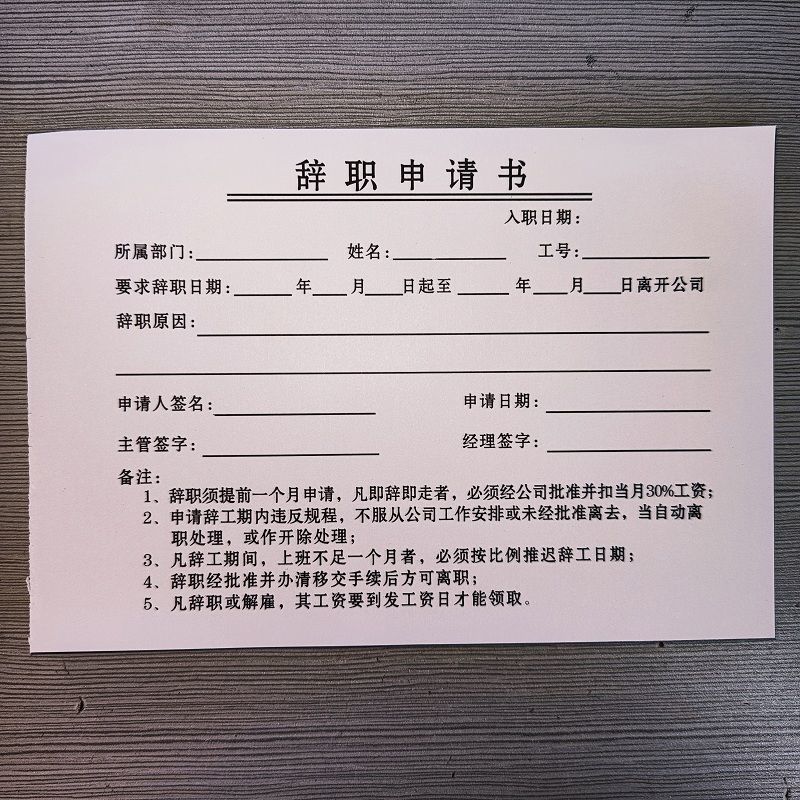 辞职申请书
入职日期:
所属部门:____________ 姓名:____________ 工号:____________
要求辞职日期:______年____月____日起至______年____月____日离开公司
辞职原因:
申请人签名:____________ 申请日期:____________
主管签字:____________ 经理签字:____________
备注:
1、辞职须提前一个月申请，凡即辞即走者，必须经公司批准并扣当月30%工资;
2、申请辞工期内违反规程，不服从公司工作安排或未经批准离去，当自动离
职处理，或作开除处理;
3、凡辞工期间，上班不足一个月者，必须按比例推迟辞工日期;
4、辞职经批准并办清移交手续后方可离职;
5、凡辞职或解雇，其工资要到发工资日才能领取。